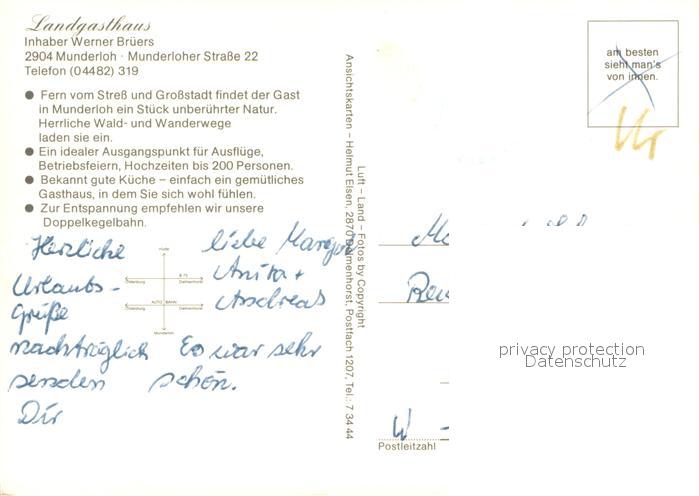 Landgasthaus
Inhaber Werner Brüers
2904 Munderloh · Munderloher Straße 22
Telefon (04482) 319
● Fern vom Streß und Großstadt findet der Gast
in Munderloh ein Stück unberührter Natur.
Herrliche Wald- und Wanderwege
laden sie ein.
● Ein idealer Ausgangspunkt für Ausflüge,
Betriebsfeiern, Hochzeiten bis 200 Personen.
● Bekannt gute Küche – einfach ein gemütliches
Gasthaus, in dem Sie sich wohl fühlen.
● Zur Entspannung empfehlen wir unsere
Doppelkegelbahn.
Herzliche
Urlaubs-
grüße
nachträglich
senden
Dir
liebe Margot
Anita +
Andreas
Es war sehr
schön.
Hude
Oldenburg B 75 Delmenhorst
Oldenburg AUTO BAHN Delmenhorst
Munderloh
Ansichtskarten – Helmut Eisen, 2870 Delmenhorst, Postfach 1207, Tel.: 7 34 44
Luft – Land – Fotos by Copyright
am besten
sieht man's
von innen.
W -
Postleitzahl
privacy protection
Datenschutz